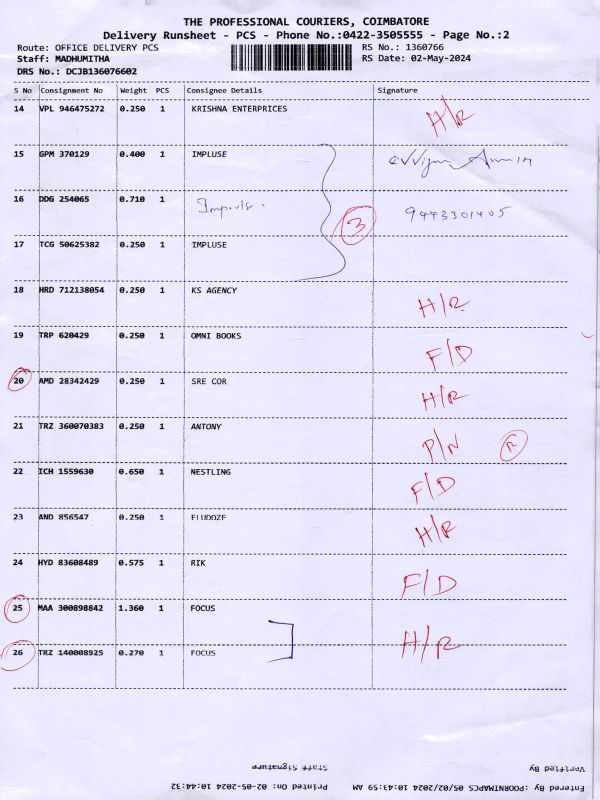 THE PROFESSIONAL COURIERS, COIMBATORE
Delivery Runsheet - PCS - Phone No.:0422-3505555 - Page No.:2
Route: OFFICE DELIVERY PCS RS No.: 1360766
Staff: MADHUMITHA RS Date: 02-May-2024
DRS No.: DCJB136076602
S No Consignment No Weight PCS Consignee Details Signature
14 VPL 946475272 0.250 1 KRISHNA ENTERPRICES H/R
15 GPM 370129 0.400 1 IMPLUSE
16 DDG 254065 0.710 1 Impulse. 3 9443301405
17 TCG 50625382 0.250 1 IMPLUSE
18 HRD 712138054 0.250 1 KS AGENCY H/R
19 TRP 620429 0.250 1 OMNI BOOKS F/D
20 AMD 28342429 0.250 1 SRE COR H/R
21 TRZ 360070383 0.250 1 ANTONY P/N R
22 ICH 1559630 0.650 1 NESTLING F/D
23 AND 856547 0.250 1 H/R
24 HYD 83608489 0.575 1 RIK F/D
25 MAA 300898842 1.360 1 FOCUS
H/R
26 TRZ 140008925 0.270 1 FOCUS
Verified By Staff Signature
Entered By :POORNIMAPCS 05/02/2024 10:43:59 AM Printed On: 02-05-2024 10:44:32